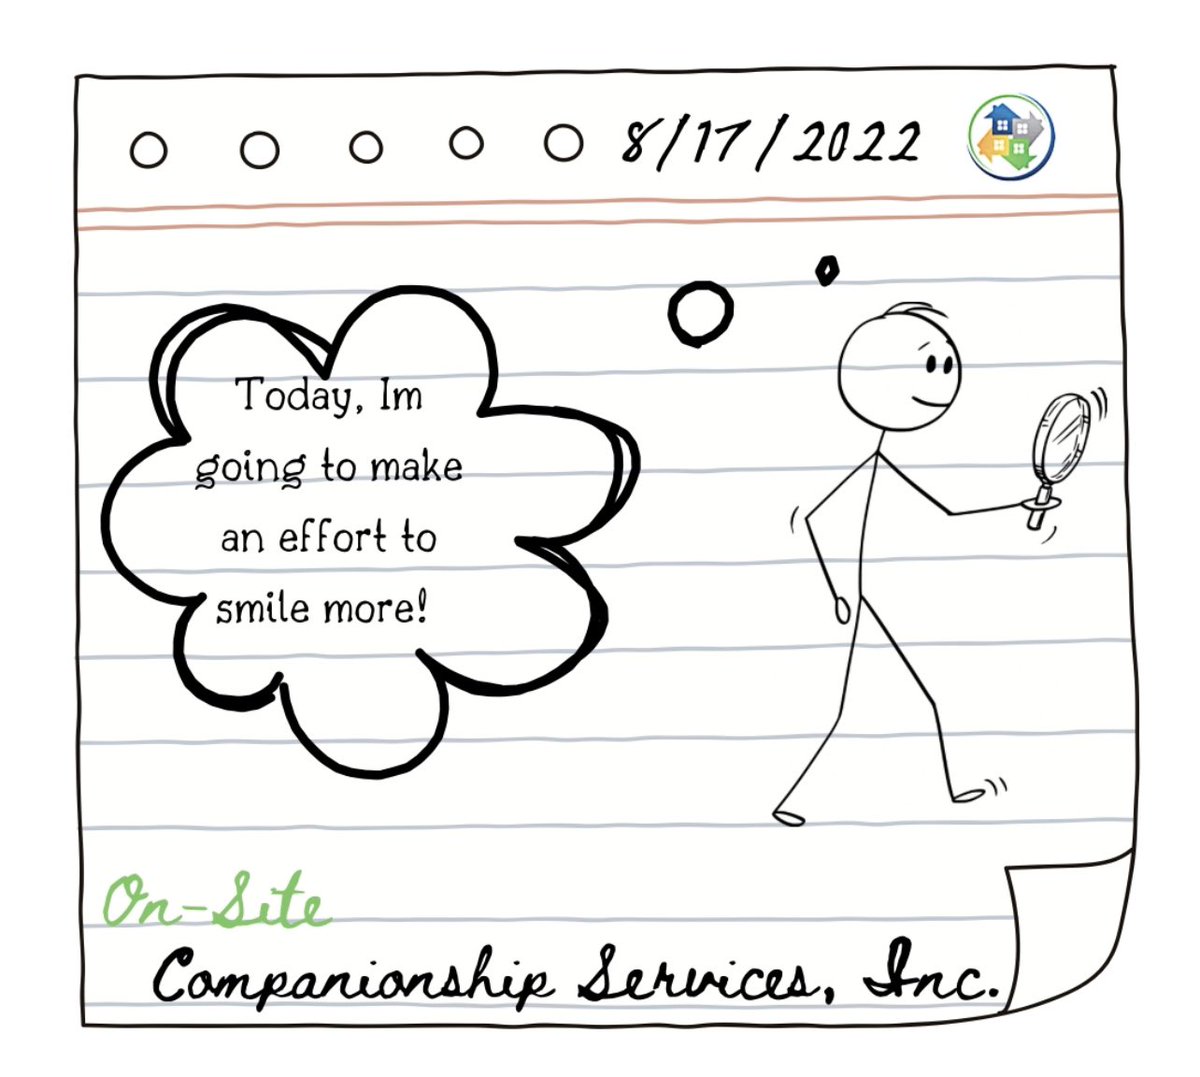 8/17/2022
Today, Im
going to make
an effort to
smile more!
On-Site
Companionship Services, Inc.